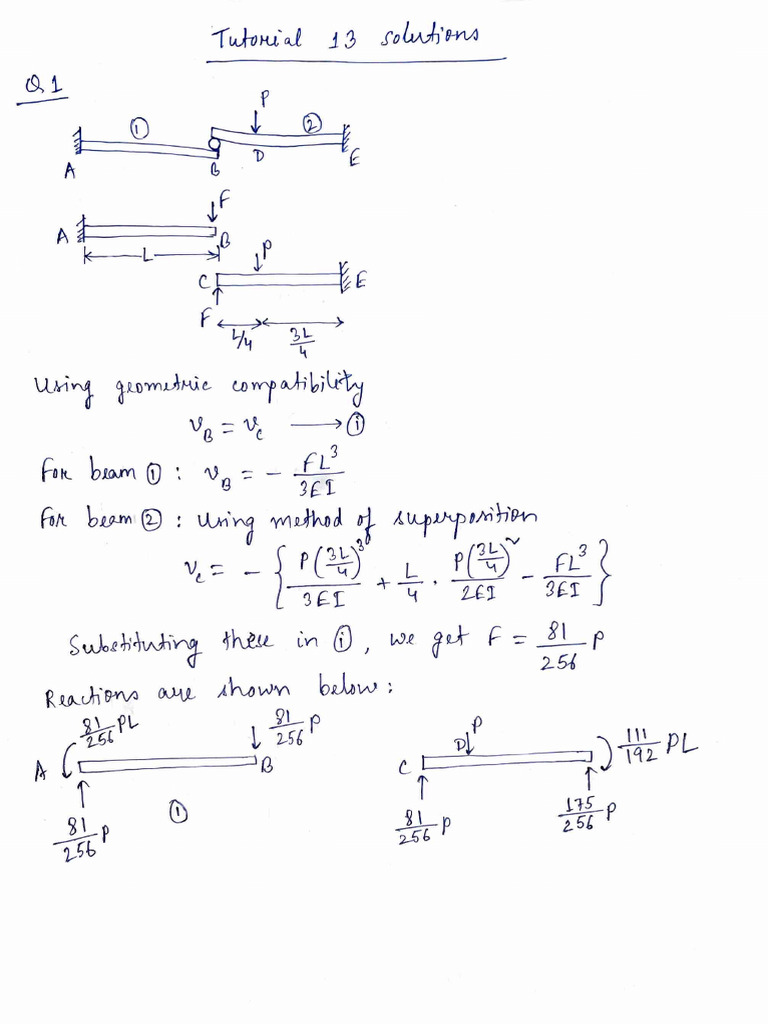 Tutorial 13 solutions
Q1
P
① ②
A B D E
F
A B
L
P
C E
F L/4 3L/4
Using geometric compatibility
v_B = v_c ⟶ ⓘ
For beam ① : v_B = - FL³/3EI
For beam ② : Using method of superposition
v_c = - { P(3L/4)³/3EI + L/4 · P(3L/4)²/2EI - FL³/3EI }
Substituting these in ⓘ, we get F = 81/256 P
Reactions are shown below:
81/256 PL 81/256 P P 111/192 PL
A B C D
81/256 P ① 81/256 P 175/256 P